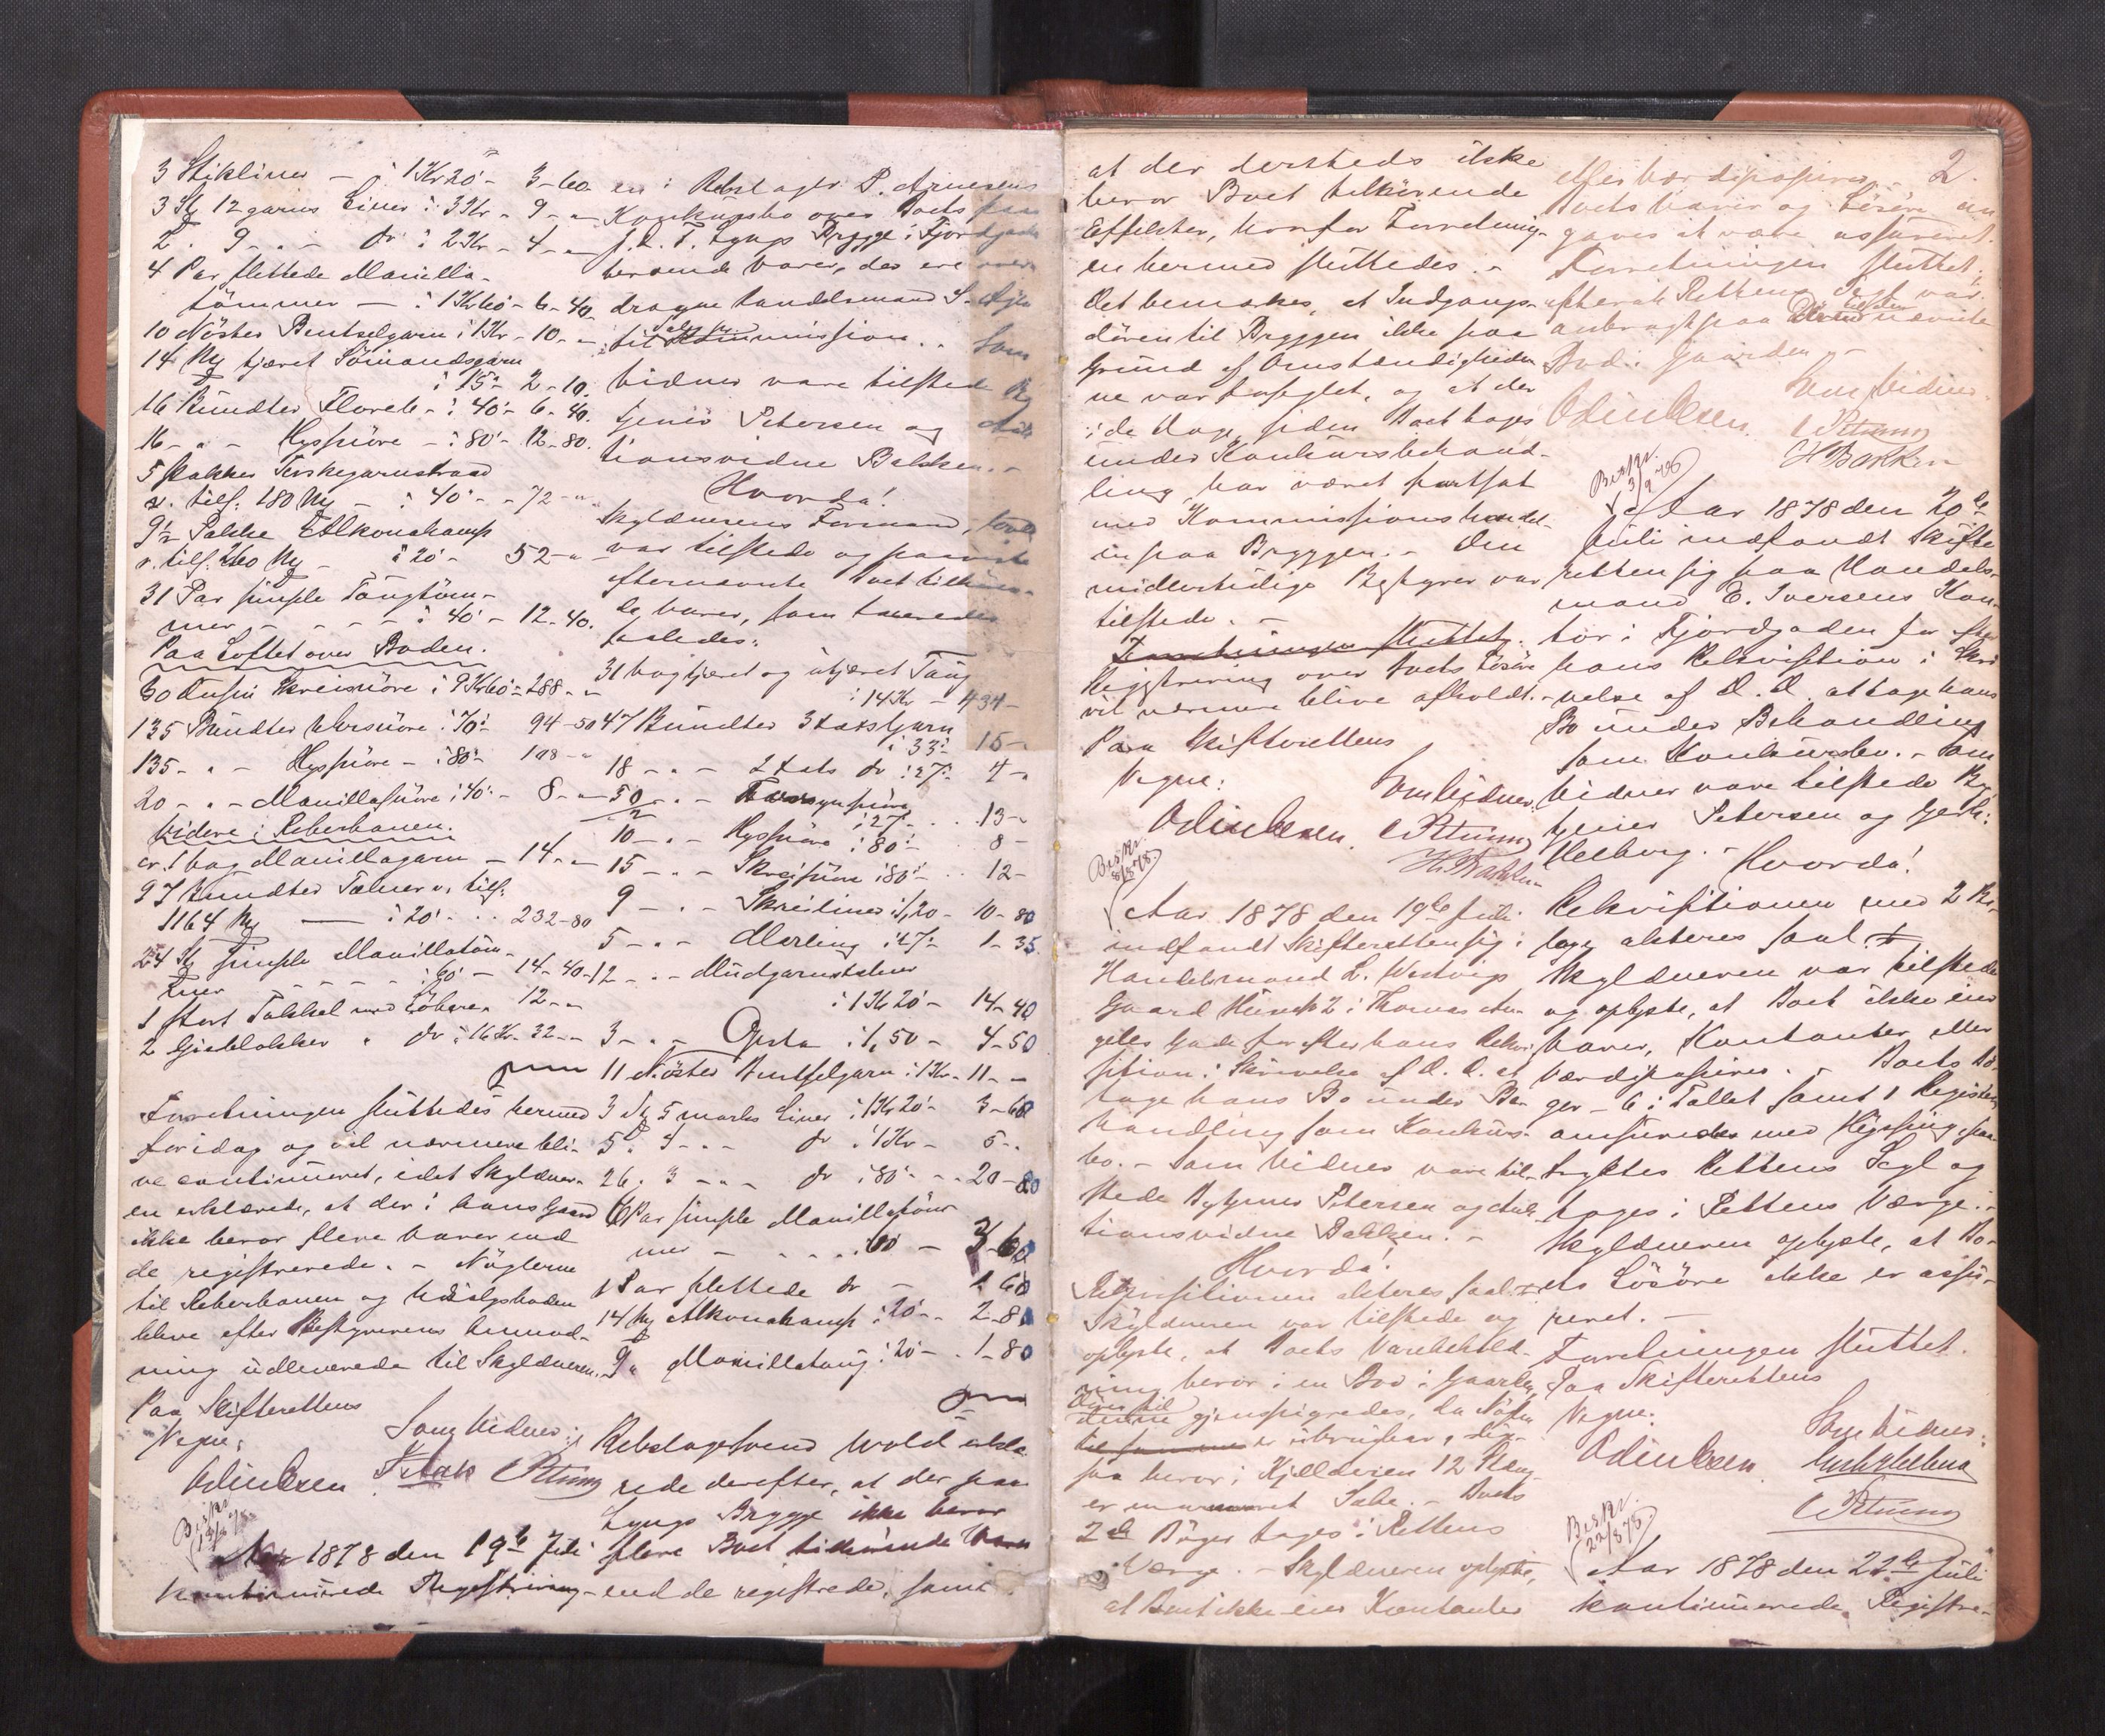 3 Stikliner — i 1 Kr 20 - 3-60
3 St 12 garns Liner i 3 Kr - 9 - "
2 . 9 - " - do i 2 Kr - 4 - "
4 Par flettede Manilla-
tömmer — i 1 Kr 60 - 6-40
10 Nöster Bentselgarn i 1 Kr - 10 - "
14 tjæret Sömandsgarn
i 15 - 2-10.
16 Bundter - i 40 - 6-40.
16 - " - Hyssnöre - i 80 - 12-80.
5 Pakker Torskegarnstraad
v. tils. 180 - i 40 - 72 - "
9½ Pakke
v. tils. 260 - i 20 - 52 - "
31 Par simple Tougtöm-
mer - - - i 40 - 12-40.
Paa Loftet over Boden.
30 Dusin Skreisnöre i 9 Kr 60 - 288 - "
135 Bundter i 70 - 94-50
135 - " - Hyssnöre - i 80 - 108 - "
20 - " - Manillasnöre i 40 - 8 - "
Videre i Reberbanen.
er 1 bag Manillagarn - 14 - "
97 Bundter v. tils.
1164 — i 20 - 232-80
24 St simple Manillatöm-
mer - - - i 60 - 14-40
1 stort Takkel med Löbere 12 - "
2 " do i 16 Kr - 32 - "
Forretningen sluttedes hermed
for idag og vil nærmere bli-
ve continueret, idet Skyldner-
en erklærede, at der i hans Gaard
ikke beror flere varer end
de registrerede. - Nöglerne
til Reberbanen og Udsalgsboden
bleve efter Bestyrerens Anmod-
ning udleverede til Skyldneren.
Paa Skifterettens
Vegne:
Som Vidner:
Odin Olsen
Aar 1878 den 19de Juli
kontinuerede Registrering-
en i Rebslager P. Arnesens
Konkursbo over Boets paa
Lyngs Brygge i Fjordgaden
beroende varer, der ere over-
dragne Handelsmand S.
til Salg i Kommission. - Som
Vidner vare tilstede By-
tjener Petersen og Auk-
tionsvidne Bakken. -
Hvorda!
Skyldnerens Formand, Wold
var tilstede og paaviste
efternævnte Boet tilhören-
de varer, som taxeredes
saaledes:
31 vog tjæret og utjæret Toug
i 14 Kr - 434 -
47 Bundter 3 taats Garn
i 33 15 -
18 - " - 2 taats do i 27 - 4 -
50 - " - i 27 - 13 -
10 - " - Hyssnöre i 80 - 8 -
15 - " - Skreisnöre i 80 - 12 -
9 - " - Skreiliner i 1,20 - 10-80
5 - " - Merling i 27 - 1-35
12 - " -
i 1 Kr 20 - 14-40
3 - " - i 1,50 - 4-50
11 Nöster Bentselgarn i 1 Kr - 11 - "
3 St 5 marks Liner i 1 Kr 20 - 3-60
5 . 4 - " - do i 1 Kr - 5 - "
26 . 3 - " - do i 80 - 20-80
6 Par simple Manillatöm-
mer - - - i 60 - 3-60
1 Par flettede do - 1-60
14 i 20 - 2-80
9 " Manillatoug i 20 - 1-80
Rebslagersvend Wold erklæ-
rede derefter, at der paa
Lyngs Brygge ikke beror
flere Boet tilhörende Varer
end de registrede, samt
2.
at der dersteds ikke
beror Boet tilhörende
Effekter, hvorfor Forretning-
en hermed sluttedes. -
Det bemærkes, at Indgangs-
dören til Bryggen ikke paa
Grund af Omstændigheder-
ne var forseglet, og at der
i de Dage siden Boet toges
under Konkursbehand-
ling har været fortsat
med Kommissionshandel-
en paa Bryggen. - Den
midlertidige Bestyrer var
tilstede. -
Forretningen sluttet.
Registrering over Boets Lösöre
vil nærmere blive afholdt. -
Paa Skifterettens
Vegne:
Som Vidner:
Odin Olsen. Petersen
H. Bakken
Aar 1878 den 19de Juli
indfandt Skifteretten sig i
Handelsmand L. Westvigs
Gaard No 2 i Thomas An-
gells Gade for efter hans Rekvi-
sition i Skrivelse af D. D. at
tage hans Bo under Be-
handling som Konkurs-
bo. - Som Vidner vare til-
stede Bytjener Petersen og Auk-
tionsvidne Bakken. -
Hvorda!
Rekvisitionen akteres saal.
Skyldneren var tilstede og
oplyste, at Boets Varebehold-
ning beror i en Bod i Gaarden,
Dören til
denne gjenspigredes, da Nöglen
til samme er ubrugbar, lige-
saa beror i Kjelderen 12
Sæbe. - Boets
2de Böger toges i Rettens
Værge. - Skyldneren oplyste,
at Boet ikke eier Kontanter
eller Værdipapirer. -
Boets varer og Lösöre an-
gaves at være assureret.
Forretningen sluttet,
efterat Rettens Segl var
anbragt paa Dören nævnte
Bod i Gaarden. -
Som Vidner:
Odin Olsen. Petersen
H. Bakken
Aar 1878 den 20de
Juli indfandt Skifte-
retten sig paa Handels-
mand E. Iversens Kon-
tor i Fjordgaden for efter
hans Rekvisition i Skri-
velse af D. D. at tage hans
Bo under Behandling
som Konkursbo. - Som
Vidner vare tilstede By-
tjener Petersen og
Helberg. - Hvorda!
Rekvisitionen med 2 Bi-
lag akteres saal.
Skyldneren var tilstede
og oplyste, at Boet ikke eier
varer, Kontanter eller
Værdipapirer. - Boets Bö-
ger - 6 i Tallet samt 1 Register
omsnöredes med Hyssing, paa-
tryktes Rettens Segl og
toges i Rettens Værge. -
Skyldneren oplyste, at Bo-
ets Lösöre ikke er assu-
reret. -
Forretningen sluttet.
Paa Skifterettens
Vegne:
Som Vidner:
Odin Olsen.
Petersen
Aar 1878 den 22de Juli
kontinuerede Registre-